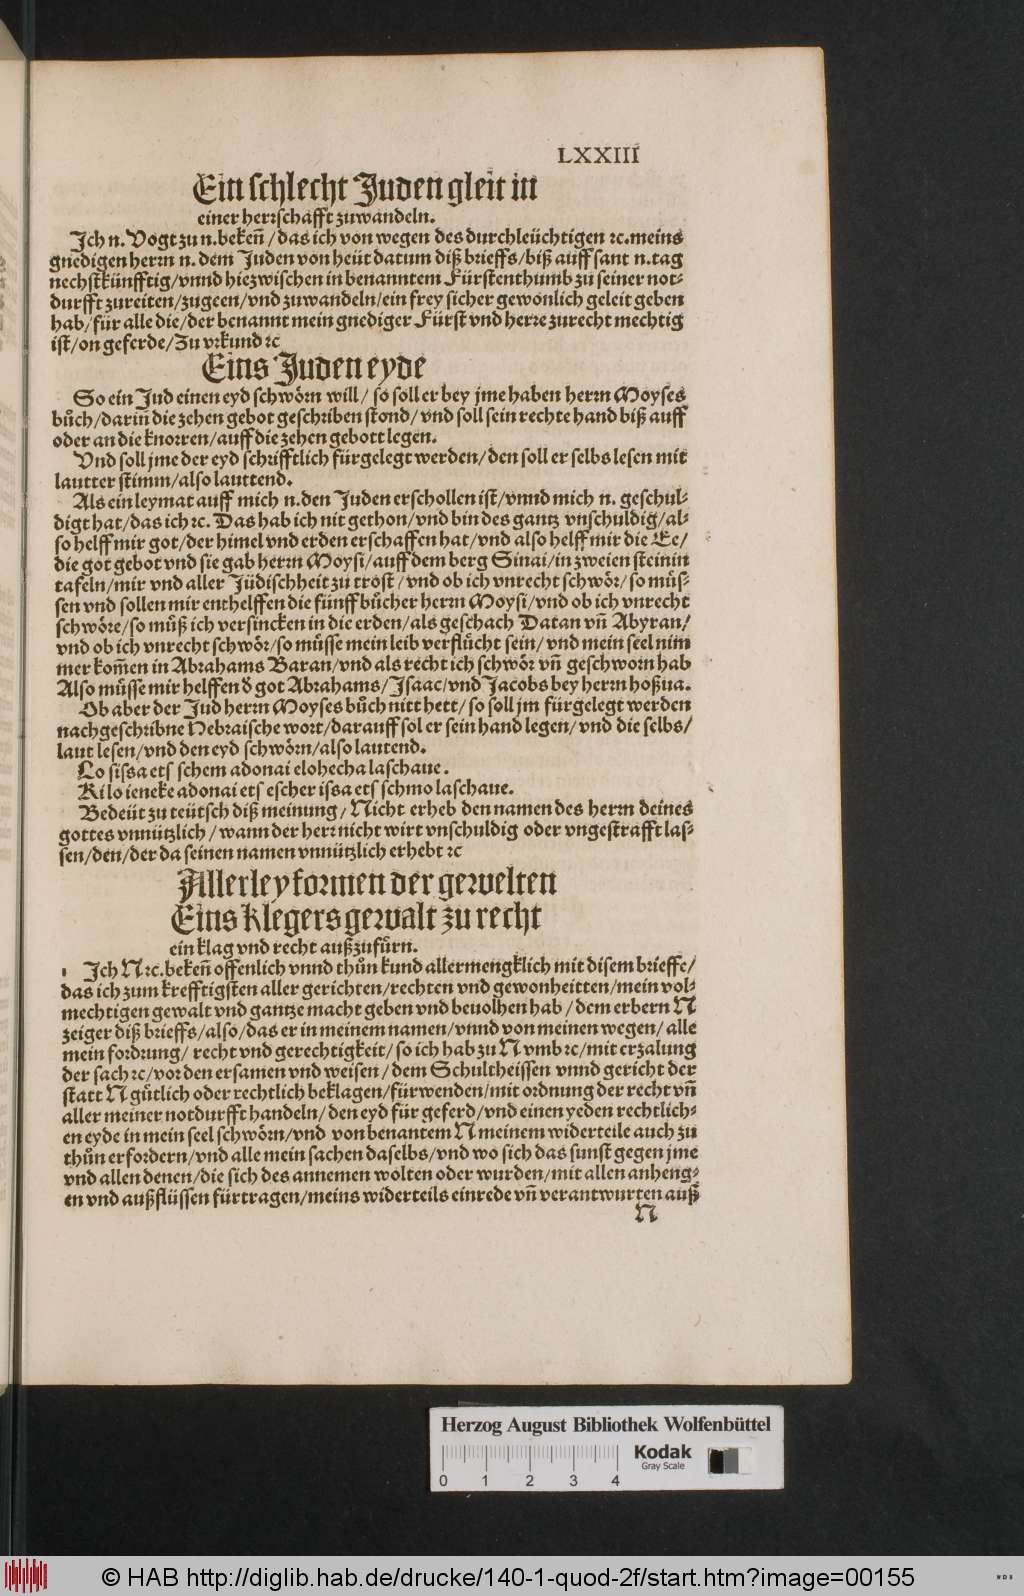 LXXIII
Ein schlecht Juden gleit in
einer herrschafft zuwandeln.
Jch n. Vogt zu n. bekeñ / das ich von wegen des durchleüchtigen ꝛc. meins
gnedigen herrn n. dem Juden von heüt datum diß brieffs / biß auff sant n. tag
nechstkünfftig / vnnd hiezwischen in benanntem Fürstenthumb zů seiner not-
durfft zureiten / zugeen / vnd zuwandeln / ein frey sicher gewonlich geleit geben
hab / für alle die / der benannt mein gnediger Fürst vnd herre zurecht mechtig
ist / on geferde / Zu vrkund ꝛc
Eins Juden eyde
So ein Jud einen eyd schwörn will / so soll er bey jme haben herrn Moyses
bůch / dariñ die zehen gebot geschriben stond / vnd soll sein rechte hand biß auff
oder an die knorren / auff die zehen gebott legen.
Vnd soll jme der eyd schrifftlich fürgelegt werden / den soll er selbs lesen mit
lautter stimm / also lauttend.
Als ein leymat auff mich n. den Juden erschollen ist / vnnd mich n. geschul-
digt hat / das ich ꝛc. Das hab ich nit gethon / vnd bin des gantz vnschuldig / al-
so helff mir got / der himel vnd erden erschaffen hat / vnd also helff mir die Ee /
die got gebot vnd sie gab herrn Moysi / auff dem berg Sinai / in zweien steinin
tafeln / mir vnd aller Jüdischheit zu trost / vnd ob ich vnrecht schwör / so müs-
sen vnd sollen mir enthelffen die fünff bůcher herrn Moysi / vnd ob ich vnrecht
schwöre / so můß ich versincken in die erden / als geschach Datan vñ Abyran /
vnd ob ich vnrecht schwör / so müsse mein leib verflůcht sein / vnd mein seel nim
mer kom̃en in Abrahams Baran / vnd als recht ich schwör vñ geschworn hab
Also müsse mir helffen d̕ got Abrahams / Jsaac / vnd Jacobs bey herrn hoßua.
Ob aber der Jud herrn Moyses bůch nitt hett / so soll jm fürgelegt werden
nachgeschribne Hebraische wort / darauff sol er sein hand legen / vnd die selbs /
laut lesen / vnd den eyd schwörn / also lautend.
Lo sissa ets schem adonai elohecha laschaue.
Ki lo ieneke adonai ets escher issa ets schmo laschaue.
Bedeüt zu teütsch diß meinung / Nicht erheb den namen des herrn deines
gottes vnnützlich / wann der herr nicht wirt vnschuldig oder vngestrafft las-
sen / den / der da seinen namen vnnützlich erhebt ꝛc
Allerley formen der gewelten
Eins klegers gewalt zu recht
ein klag vnd recht außzufürn.
1 Jch N ꝛc. bekeñ offenlich vnnd thůn kund allermengklich mit disem brieffe /
das ich zum krefftigsten aller gerichten / rechten vnd gewonheitten / mein vol-
mechtigen gewalt vnd gantze macht geben vnd beuolhen hab / dem erbern N
zeiger diß brieffs / also / das er in meinem namen / vnnd von meinen wegen / alle
mein fordrung / recht vnd gerechtigkeit / so ich hab zu N vmb ꝛc / mit erzalung
der sach ꝛc / vor den ersamen vnd weisen / dem Schultheissen vnnd gericht der
statt N gütlich oder rechtlich beklagen / fürwenden / mit ordnung der recht vñ
aller meiner notdurfft handeln / den eyd für geferd / vnd einen yeden rechtlich-
en eyde in mein seel schwörn / vnd von benantem N meinem widerteile auch zu
thůn erfordern / vnd alle mein sachen daselbs / vnd wo sich das sunst gegen jme
vnd allen denen / die sich des annemen wolten oder wurden / mit allen anheng-
en vnd außflüssen fürtragen / meins widerteils einrede vñ verantwurten auß
N
Herzog August Bibliothek Wolfenbüttel
0 1 2 3 4
Kodak
Gray Scale
© HAB http://diglib.hab.de/drucke/140-1-quod-2f/start.htm?image=00155